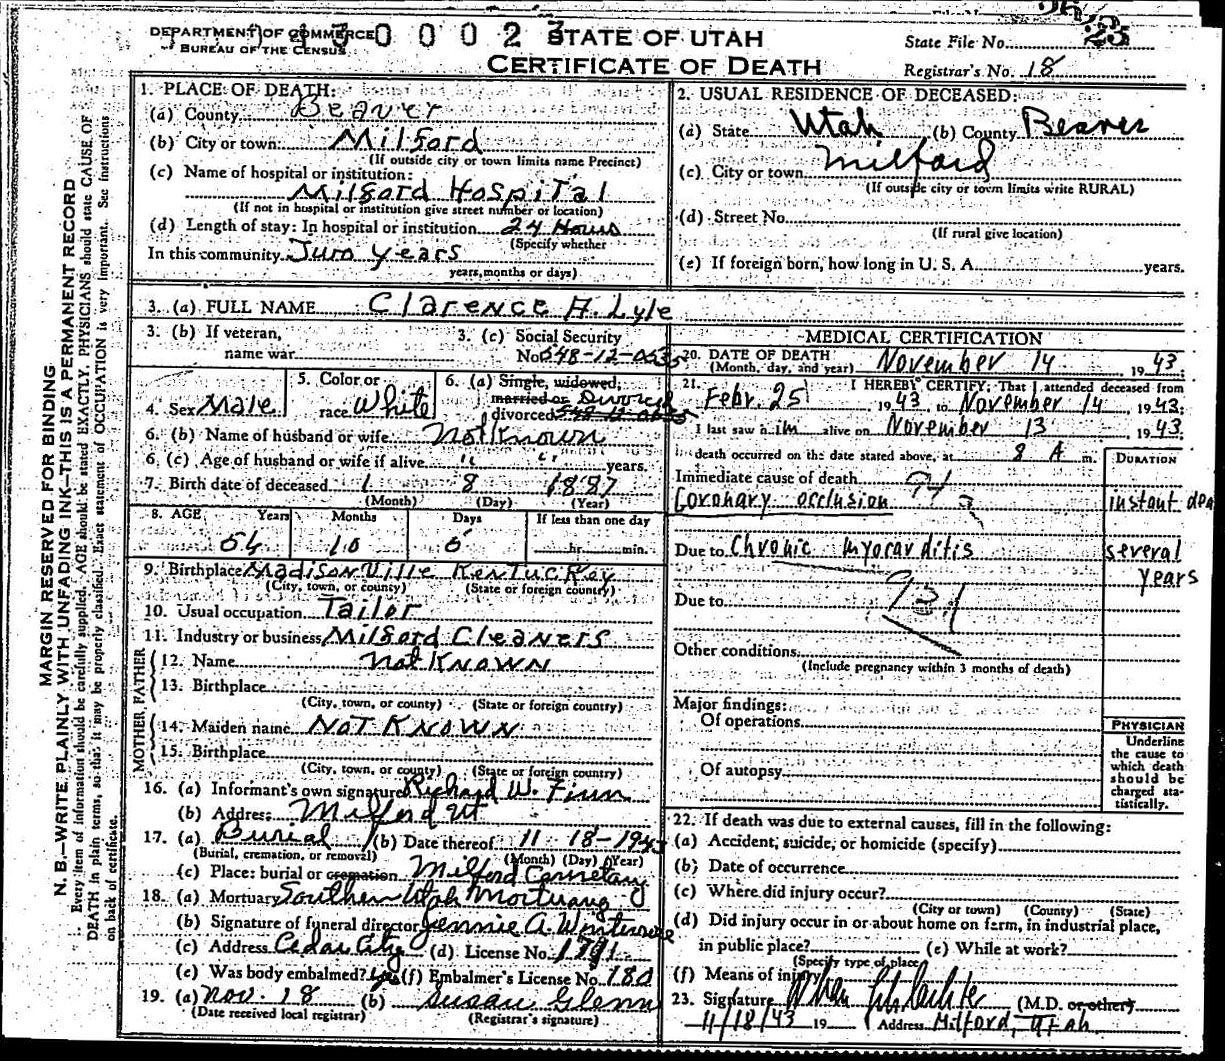 DEPARTMENT OF COMMERCE
BUREAU OF THE CENSUS
0 0 0 2 3
STATE OF UTAH
CERTIFICATE OF DEATH
State File No. 23
Registrar's No. 18
MARGIN RESERVED FOR BINDING
N. B.—WRITE PLAINLY WITH UNFADING INK—THIS IS A PERMANENT RECORD
Every item of information should be carefully supplied. AGE should be stated EXACTLY. PHYSICIANS should state CAUSE OF
DEATH in plain terms, so that it may be properly classified. Exact statement of OCCUPATION is very important. See instructions
on back of certificate.
1. PLACE OF DEATH:
(a) County Beaver
(b) City or town: Milford
(If outside city or town limits name Precinct)
(c) Name of hospital or institution:
Milford Hospital
(If not in hospital or institution give street number or location)
(d) Length of stay: In hospital or institution 24 Hours
(Specify whether
In this community Two years
years, months or days)
2. USUAL RESIDENCE OF DECEASED:
(a) State Utah (b) County Beaver
(c) City or town Milford
(If outside city or town limits write RURAL)
(d) Street No.
(If rural give location)
(e) If foreign born, how long in U. S. A. years.
3. (a) FULL NAME Clarence A. Lyle
3. (b) If veteran,
name war
3. (c) Social Security
No. 548-12-0535
4. Sex Male
5. Color or
race White
6. (a) Single, widowed,
married or Divorced
divorced
6. (b) Name of husband or wife Not Known
6. (c) Age of husband or wife if alive " " years.
7. Birth date of deceased 1 8 1887
(Month) (Day) (Year)
8. AGE Years Months Days If less than one day
10 hr. min.
9. Birthplace Madisonville Kentuckey
(City, town, or county) (State or foreign country)
10. Usual occupation Tailer
11. Industry or business Milford Cleaners
FATHER
12. Name not Known
13. Birthplace
(City, town, or county) (State or foreign country)
MOTHER
14. Maiden name Not Known
15. Birthplace
(City, town, or county) (State or foreign country)
16. (a) Informant's own signature Richard W. Finn
(b) Address Milford Ut
17. (a) Burial (b) Date thereof 11-18-1943
(Burial, cremation, or removal) (Month) (Day) (Year)
(c) Place: burial or cremation Milford Cemetary
18. (a) Mortuary Southern Utah Mortuary
(b) Signature of funeral director Jennie A.
(c) Address Cedar City (d) License No. 1791
(e) Was body embalmed? yes (f) Embalmer's License No. 180
19. (a) Nov. 18 (b) Susan Glenn
(Date received local registrar) (Registrar's signature)
MEDICAL CERTIFICATION
20. DATE OF DEATH
(Month, day, and year) November 14 1943
21. I HEREBY CERTIFY: That I attended deceased from
Febr. 25 1943, to November 14, 1943;
I last saw him alive on November 13 1943
death occurred on the date stated above, at 8 A m.
DURATION
Immediate cause of death
Coronary occlusion instant dea
Due to Chronic myocarditis several
years
Due to
Other conditions
(Include pregnancy within 3 months of death)
Major findings:
Of operations
Of autopsy
PHYSICIAN
Underline
the cause to
which death
should be
charged sta-
tistically.
22. If death was due to external causes, fill in the following:
(a) Accident, suicide, or homicide (specify)
(b) Date of occurrence
(c) Where did injury occur?
(City or town) (County) (State)
(d) Did injury occur in or about home on farm, in industrial place,
in public place? (e) While at work?
(Specify type of place
(f) Means of injury
23. Signature (M.D. or other)
11/18/43 19 Address Milford, Utah